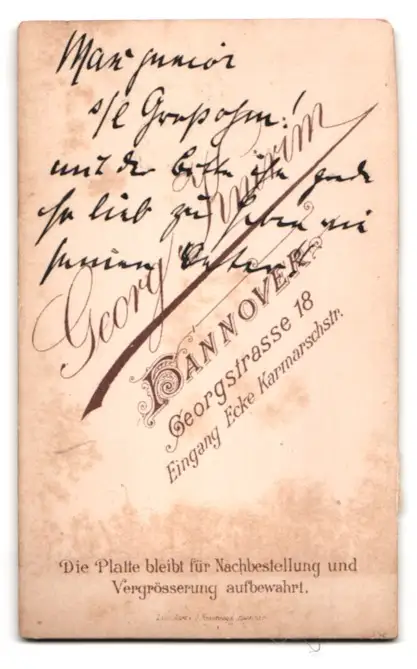 Max junior
s/l Großohm!
mit der Bitte ihn grade
so lieb zu haben wie
seinen Vater
Georg
HANNOVER
Georgstrasse 18
Eingang Ecke Karmarschstr.
Die Platte bleibt für Nachbestellung und
Vergrösserung aufbewahrt.